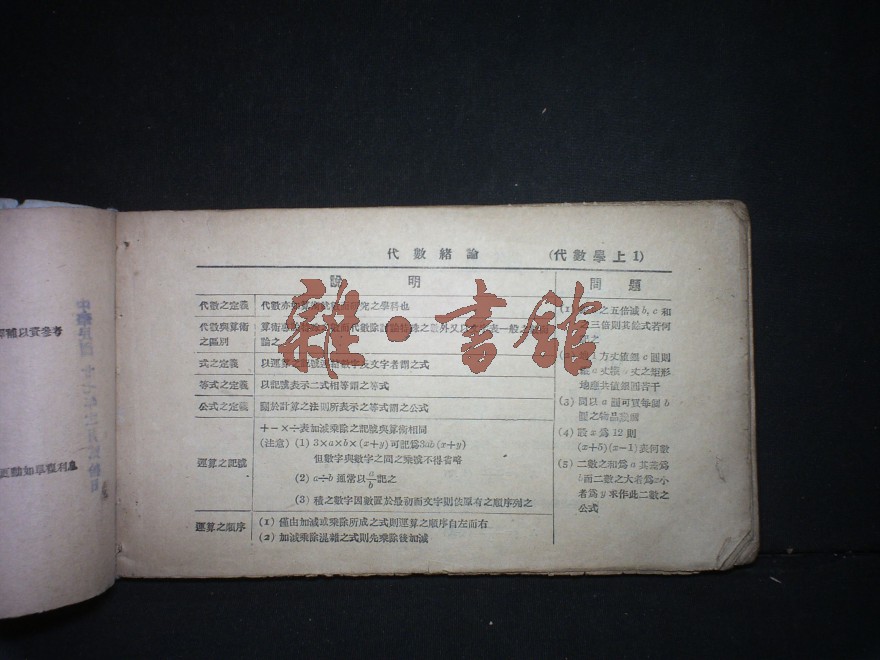 代數緒論 (代數學上 1)
說明
代數之定義 代數亦 究之學科也
代數與算術之區別 算術 代數除 外又以 表一般之 論之
式之定義 以運算之記號連結數字及文字者謂之式
等式之定義 以記號表示二式相等謂之等式
公式之定義 關於計算之法則所表示之等式謂之公式
運算之記號
+－×÷表加減乘除之記號與算術相同
(注意) (1) 3×a×b×(x+y) 可記爲3ab(x+y)
但數字與數字之間之乘號不得省略
(2) a÷b 通常以 a/b 記之
(3) 積之數字因數置於最初而文字則依原有之順序列之
運算之順序
(1) 僅由加減或乘除所成之式則運算之順序自左而右
(2) 加減乘除混雜之式則先乘除後加減
問題
(1) 之五倍減 b, c 和
之三倍則其餘式若何
方丈值銀 c 圓則
丈之矩形
地應共值銀圓若干
(3) 問以 a 圓可買每個 b
圓之物品幾個
(4) 設 x 爲 12 則
(x+5)(x-1) 表何數
(5) 二數之和爲 a 其差爲
b 而二數之大者爲 x 小
者爲 y 求作此二數之
公式
雜·書館
釋輔以資參考
更動如單複利息